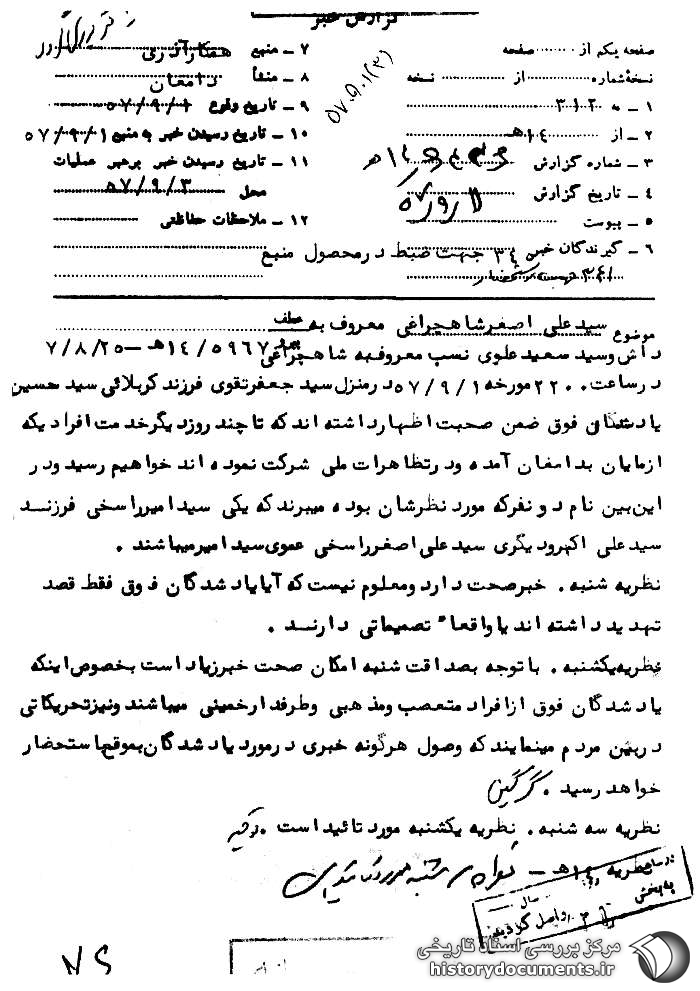 گزارش خبر
صفحه یکم از صفحه
نسخه شماره از نسخه
۱ ـ به ۳۱۲
۲ ـ از ۱۴ه‍
۳ ـ شماره گزارش
۴ ـ تاریخ گزارش
۵ ـ پیوست
۶ ـ گیرندگان خبر ۳۴۰ جهت ضبط در محصول منبع
۳۴۱
۷ ـ منبع همکار آذری
۸ ـ منشأ دامغان
۹ ـ تاریخ وقوع ۵۷/۹/۱
۱۰ ـ تاریخ رسیدن خبر به منبع ۵۷/۹/۱
۱۱ ـ تاریخ رسیدن خبر برهبر عملیات
محل ۵۷/۹/۳
۱۲ ـ ملاحظات حفاظتی
موضوع سیدعلی اصغر شاهچراغی معروف به عطف
داش وسید سعید علوی نسب معروف به شاهچراغی ۱۴/۵۹۶۷ه‍ ـ ۷/۸/۲۵
در ساعت ۲۲۰۰ مورخه ۵۷/۹/۱ در منزل سید جعفر تقوی فرزند کربلائی سید حسین
یادشدگان فوق ضمن صحبت اظهار داشته اند که تا چند روز دیگر خدمت افرادیکه
ازمایان بدامغان آمده و در تظاهرات ملی شرکت نموده اند خواهیم رسید و در
این بین نام دو نفر که مورد نظرشان بوده میبرند که یکی سید امیر راسخی فرزند
سید علی اکبر و دیگری سید علی اصغر راسخی عموی سید امیر میباشند .
نظریه شنبه . خبر صحت دارد و معلوم نیست که آیا یادشدگان فوق فقط قصد
تهدید داشته اند یا واقعاً تصمیماتی دارند .
نظریه یکشنبه . با توجه بصداقت شنبه امکان صحت خبر زیاد است بخصوص اینکه
یادشدگان فوق از افراد متعصب و مذهبی و طرفدار خمینی میباشند و نیز تحریکاتی
در بین مردم مینمایند که وصول هرگونه خبری در مورد یادشدگان بموقع باستحضار
خواهد رسید . گرگین
نظریه سه شنبه . نظریه یکشنبه مورد تائید است .
نظریه ۱۴ه‍ ـ
مرکز بررسی اسناد تاریخی
historydocuments.ir